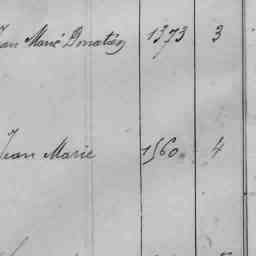 Jean Marie Donatien 1373 3
Jean Marie 1560 4